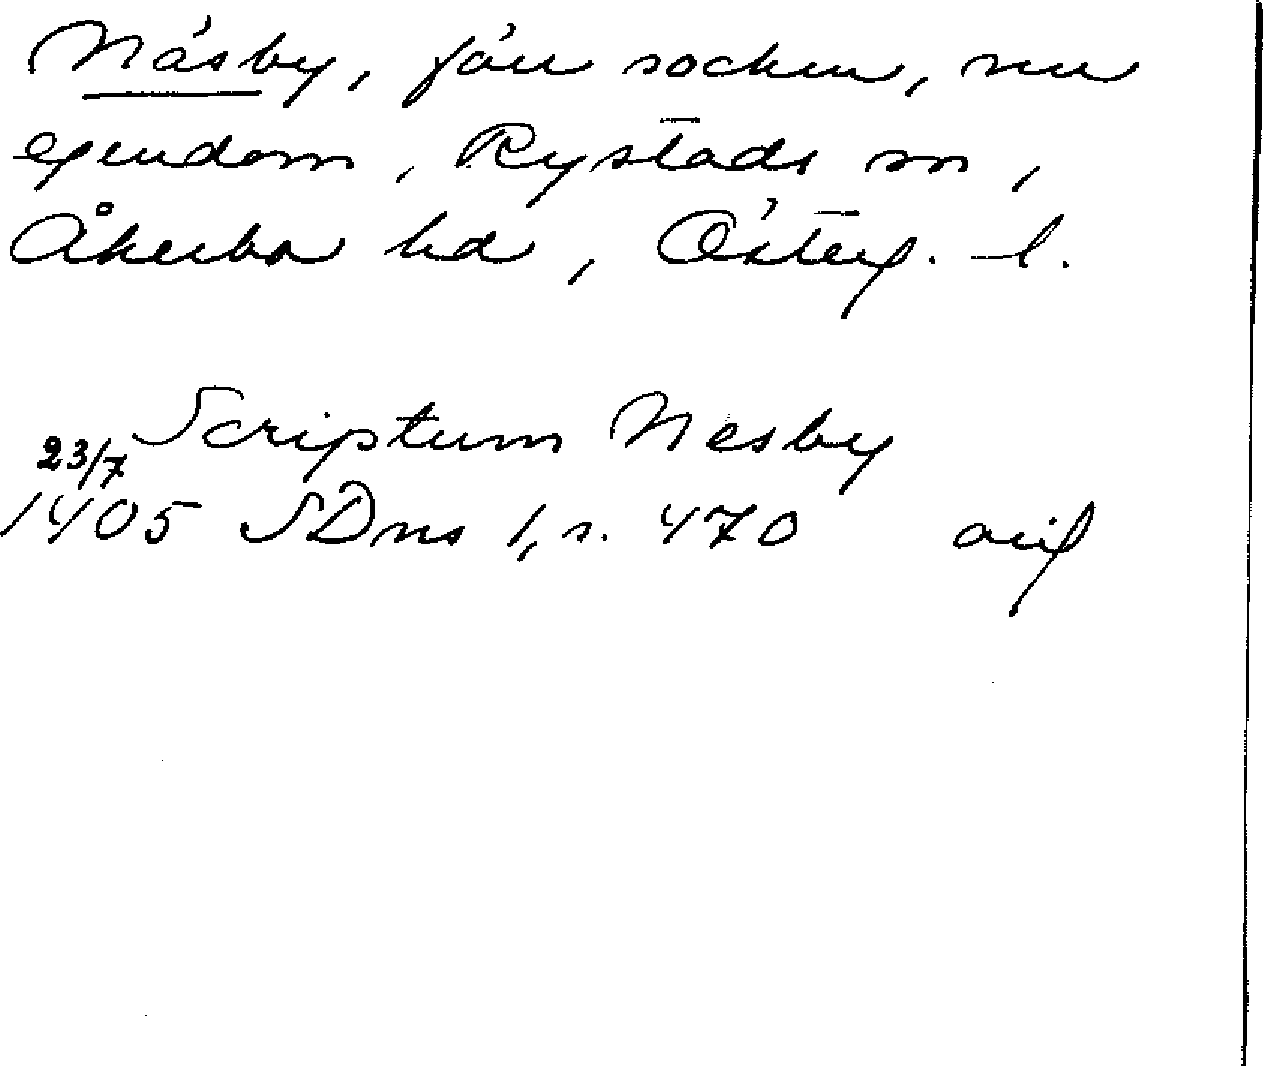 Näsby, förr socken, nu
egendom, Rystads sn,
Åkerbo hd, Österg. l.
Scriptum Nesby
23/7
1405 SDns 1, s. 470 avs